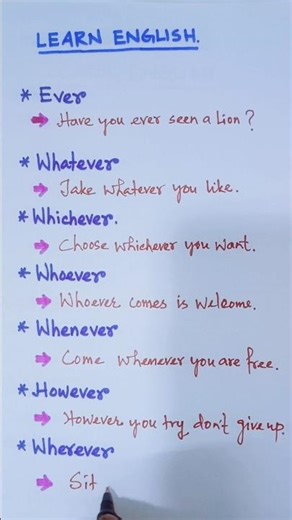 LEARN ENGLISH.
* Ever
➡ Have you ever seen a Lion?
* Whatever
➡ Take whatever you like.
* Whichever.
➡ Choose whichever you want.
* Whoever
➡ Whoever comes is welcome.
* Whenever
➡ Come whenever you are free.
* However
➡ However you try don't give up.
* Wherever
➡ Sit